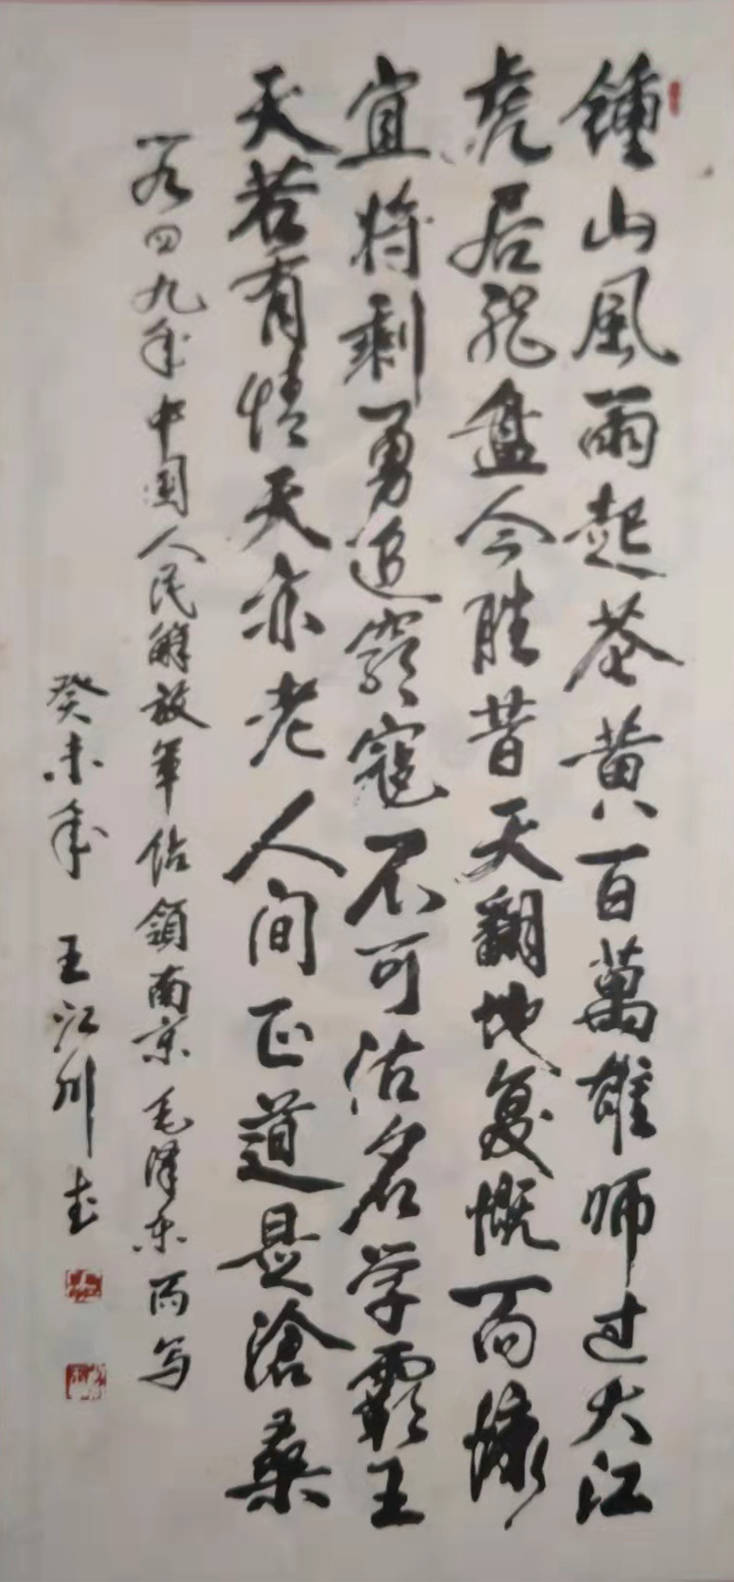 鍾山風雨起苍黄百萬雄师过大江
虎居龙盘今胜昔天翻地复慨而慷
宜将剩勇追窮寇不可沽名学霸王
天若有情天亦老人间正道是滄桑
一九四九年中国人民解放军佔領南京毛泽东而写
癸未年 王江川书